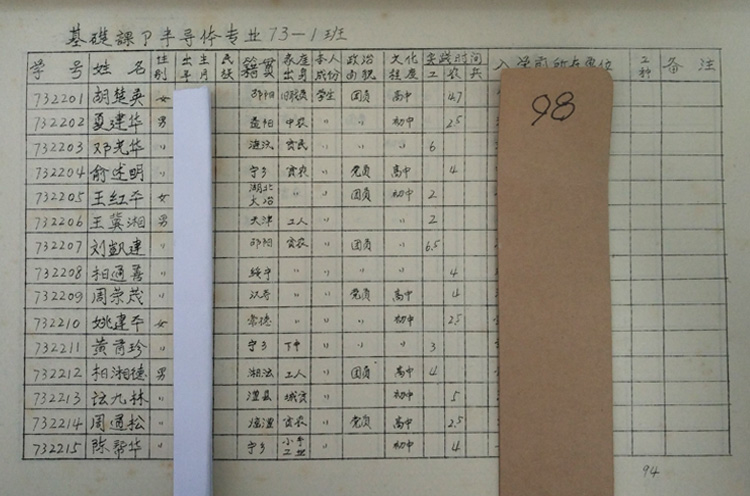 基礎課 半导体专业73-1班
学号 姓名 性别 出生年月 民族 籍贯 家庭出身 本人成份 政治面貌 文化程度 实践时间 工 农 兵 入学前所在单位 工种 备注
732201 胡楚英 女 邵阳 旧职员 学生 团员 高中 4.7
732202 夏建华 男 益阳 中农 〃 初中 2.5
732203 邓光华 〃 涟 贫民 〃 〃 〃 6
732204 俞述明 〃 宁乡 贫农 〃 党员 高中 4
732205 王红 女 湖北大冶 〃 〃 团员 初中 2
732206 王冀湘 男 天津 工人 〃 〃 2
732207 刘凯建 〃 邵阳 贫农 〃 团员 〃 6.5
732208 善 〃 绥宁 〃 〃 〃 4
732209 周荣茂 〃 汉寿 〃 〃 党员 高中 4
732210 姚建 女 常德 〃 〃 初中 2.5
732211 黄 珍 〃 宁乡 下中 〃 〃 3
732212 湘德 男 湘 工人 〃 团员 高中 4
732213 九林 〃 澧县 城贫 〃 初中 5
732214 周 松 〃 贫农 〃 党员 高中 2.5
732215 陈帮华 〃 宁乡 小手工业 〃 初中 4
98
94